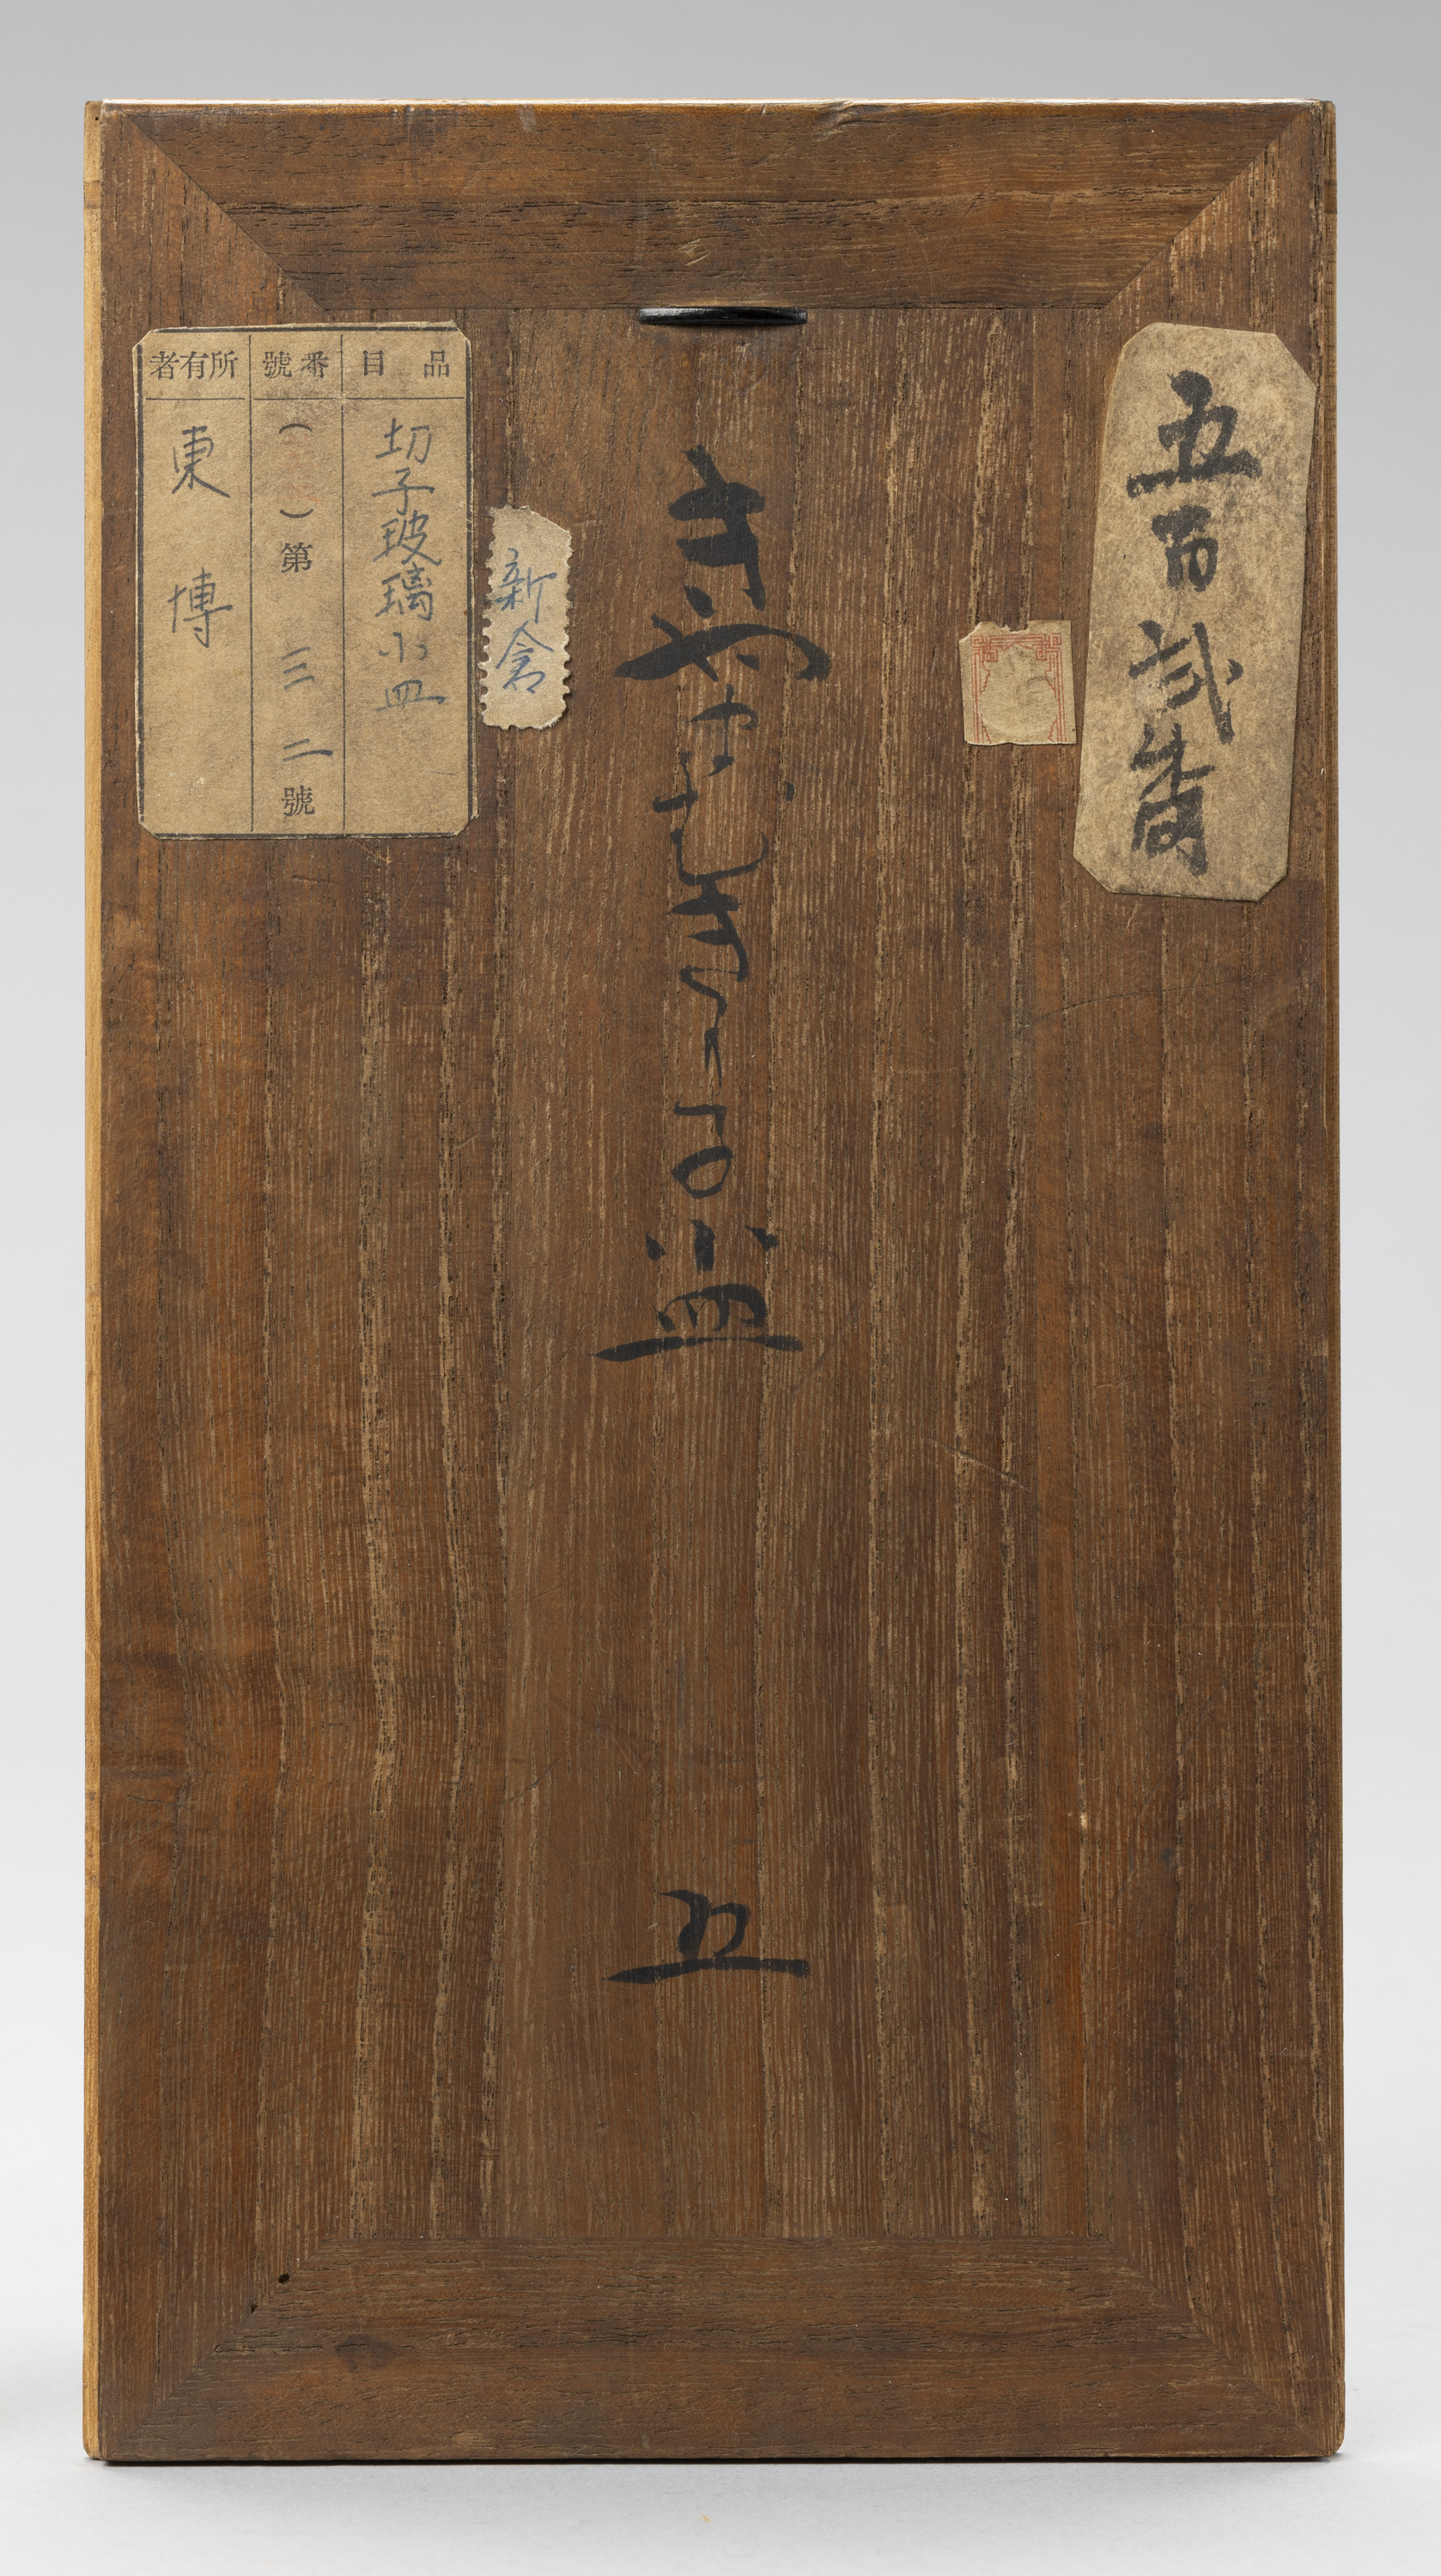 五百弐番
きやまむきり子小皿
五
新倉
品目
切子玻璃小皿
番號
( )第三二號
所有者
東博